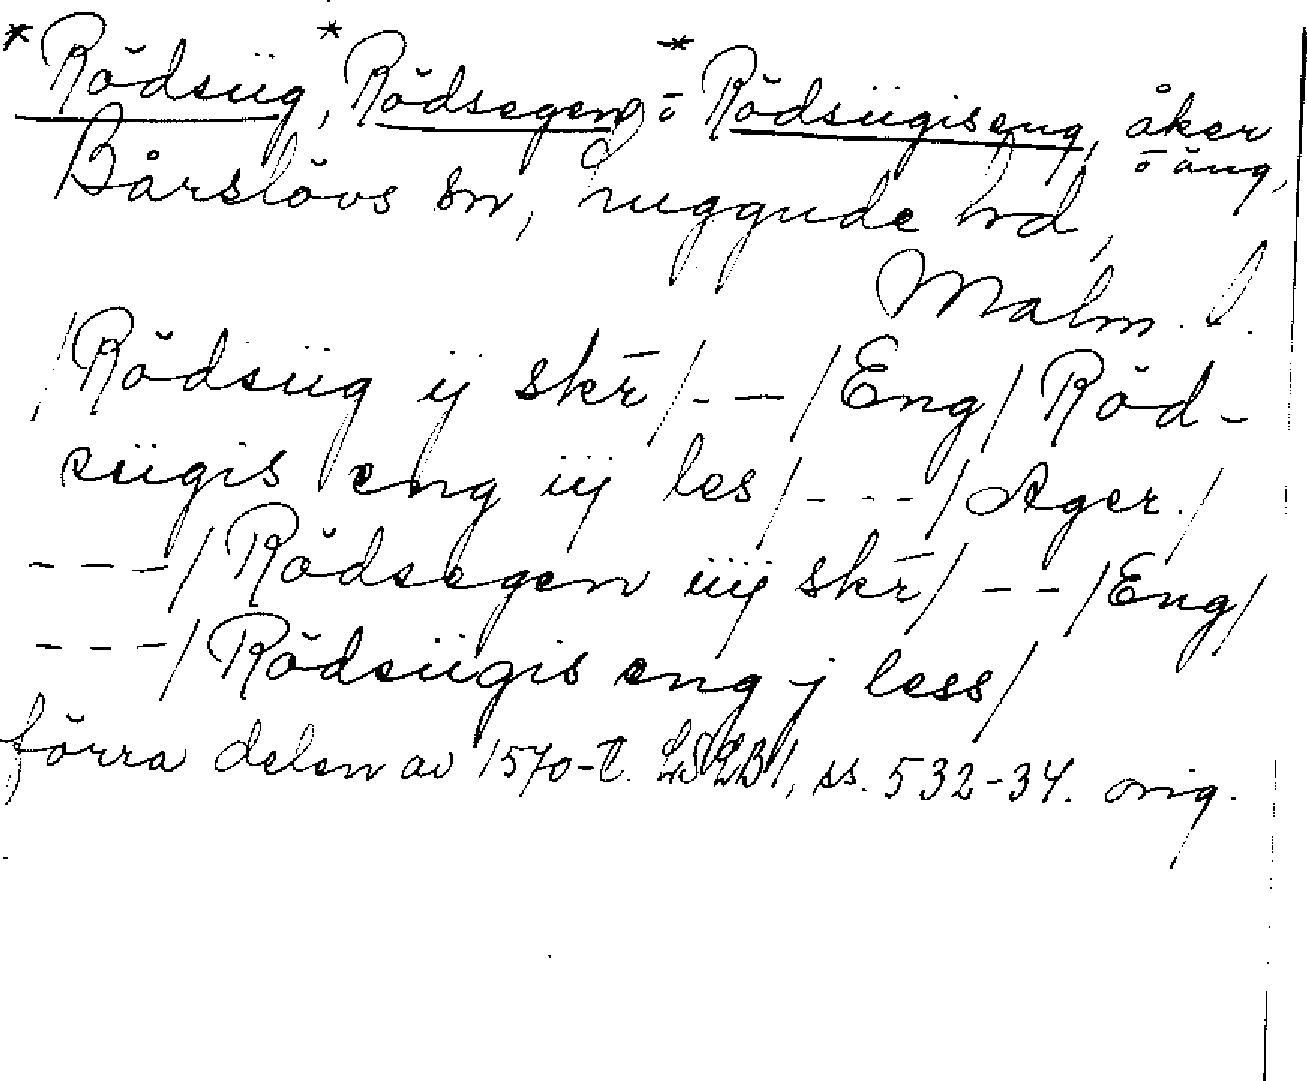 *Rödsüg, *Rödsegen o *Rödsügiseng, åker
o äng,
Bårslövs sn, Luggude hd,
Malm. l.
/Rödsüg ij skr̄/ - - -/Eng/ Röd-
sügis eng iij les/- - - -/Ager./
- - - -/Rödsegen iiij skr̄/ - - -/Eng/
- - - -/Rödsügis eng j less/
förra delen av 1570-t. LSLB 1, ss. 532-34. orig.